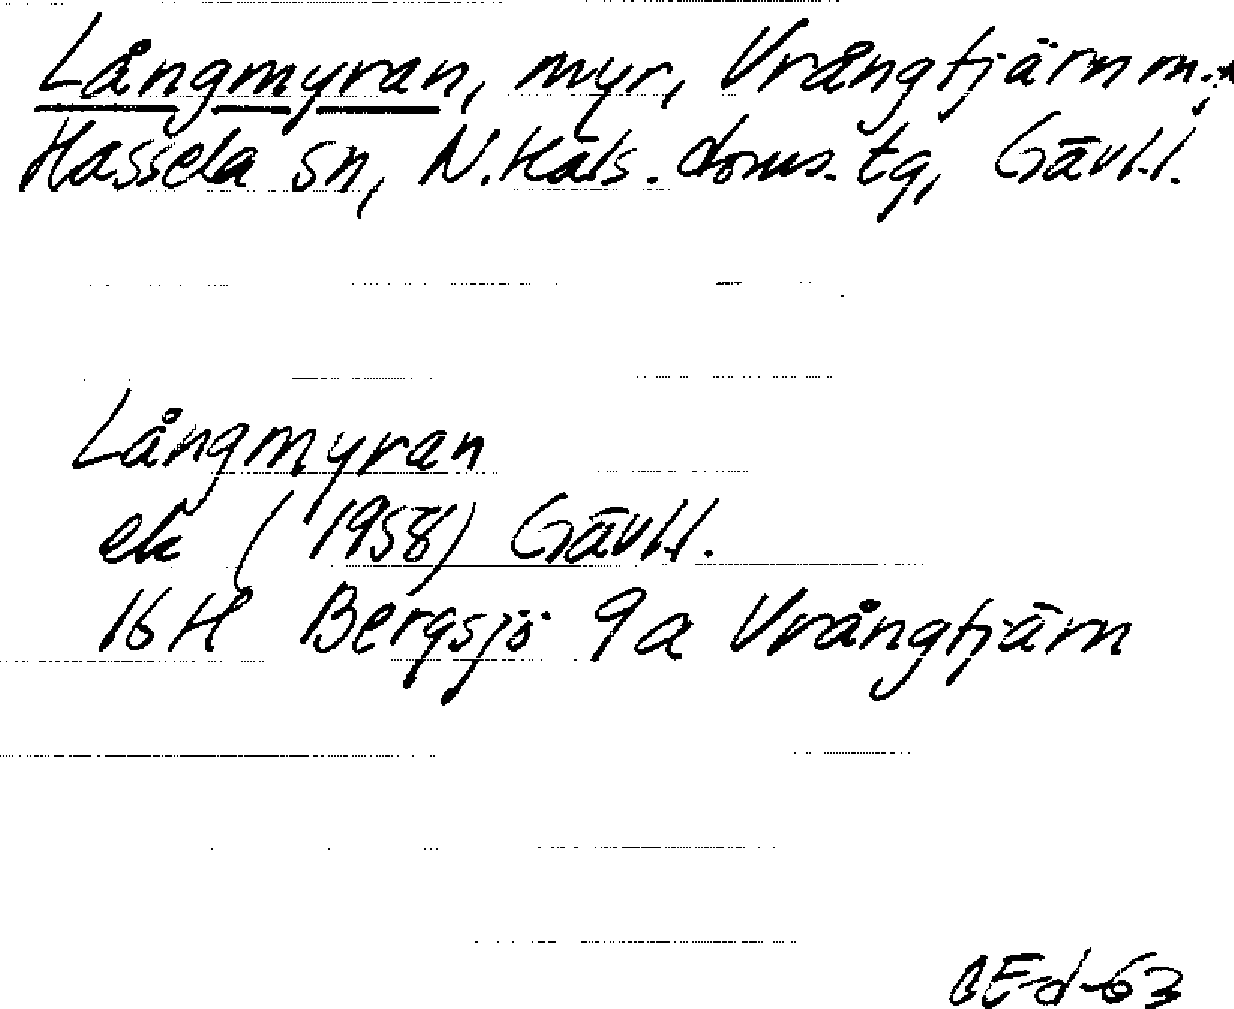 Långmyran, myr, Vrångtjärn m.fl.
Hassela sn, N. Häls. doms. tg, Gävl.l.
Långmyran
ek (1958) Gävl.l.
16H Bergsjö 9a Vrångtjärn
BEd-63